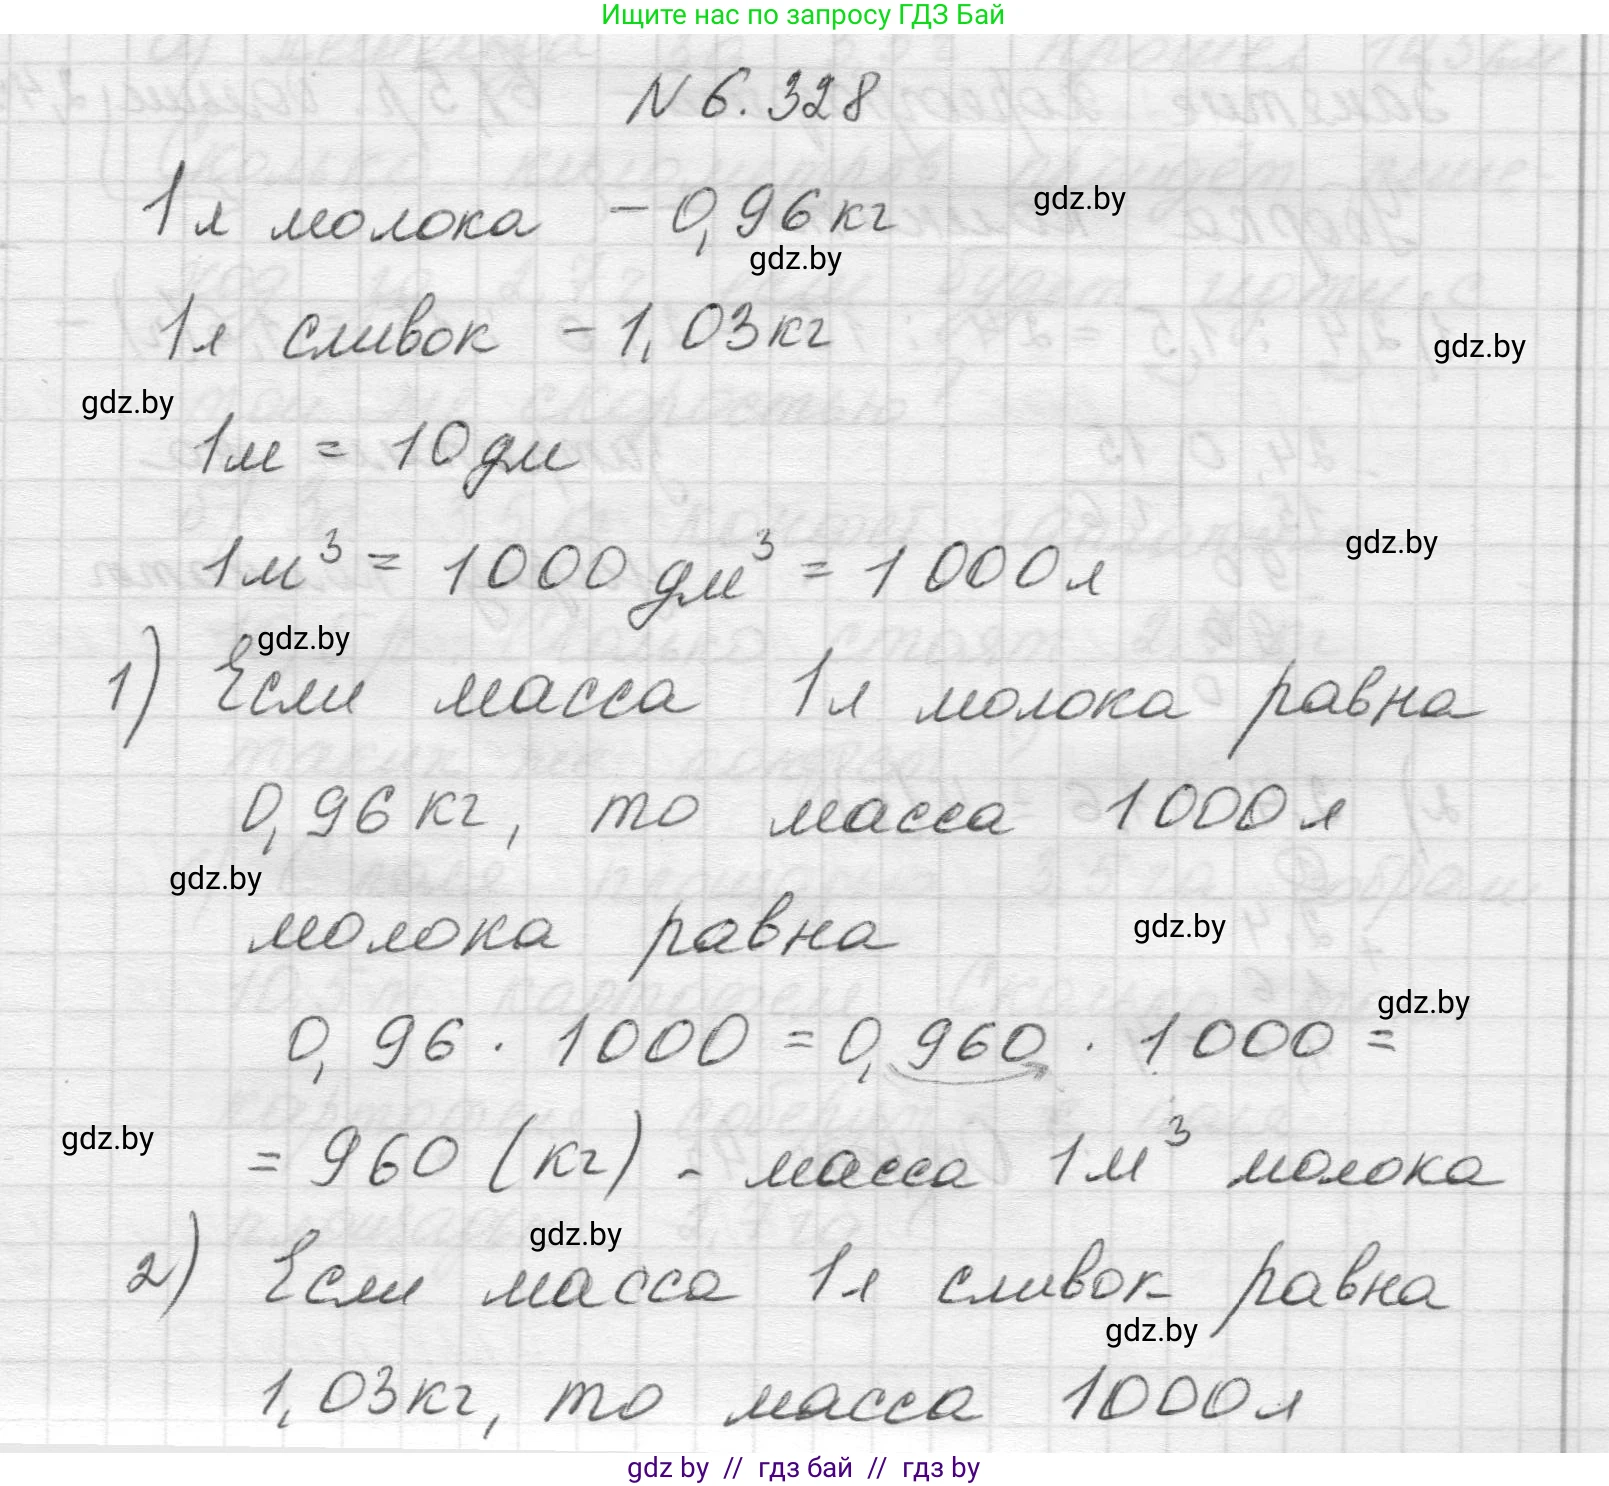 Ищите нас по запросу ГДЗ Бай
N 6.328
1л молока - 0,96 кг
gdz.by
gdz.by
1л сливок - 1,03 кг
gdz.by
gdz.by
1м = 10 дм
1м³ = 1000 дм³ = 1000 л
gdz.by
gdz.by
1) Если масса 1л молока равна
0,96 кг, то масса 1000 л
gdz.by
молока равна
gdz.by
gdz.by
0,96 · 1000 = 0,960 · 1000 =
= 960 (кг) - масса 1м³ молока
gdz.by
gdz.by
2) Если масса 1л сливок равна
gdz.by
1,03 кг, то масса 1000 л
gdz by // гдз бай // гдз by